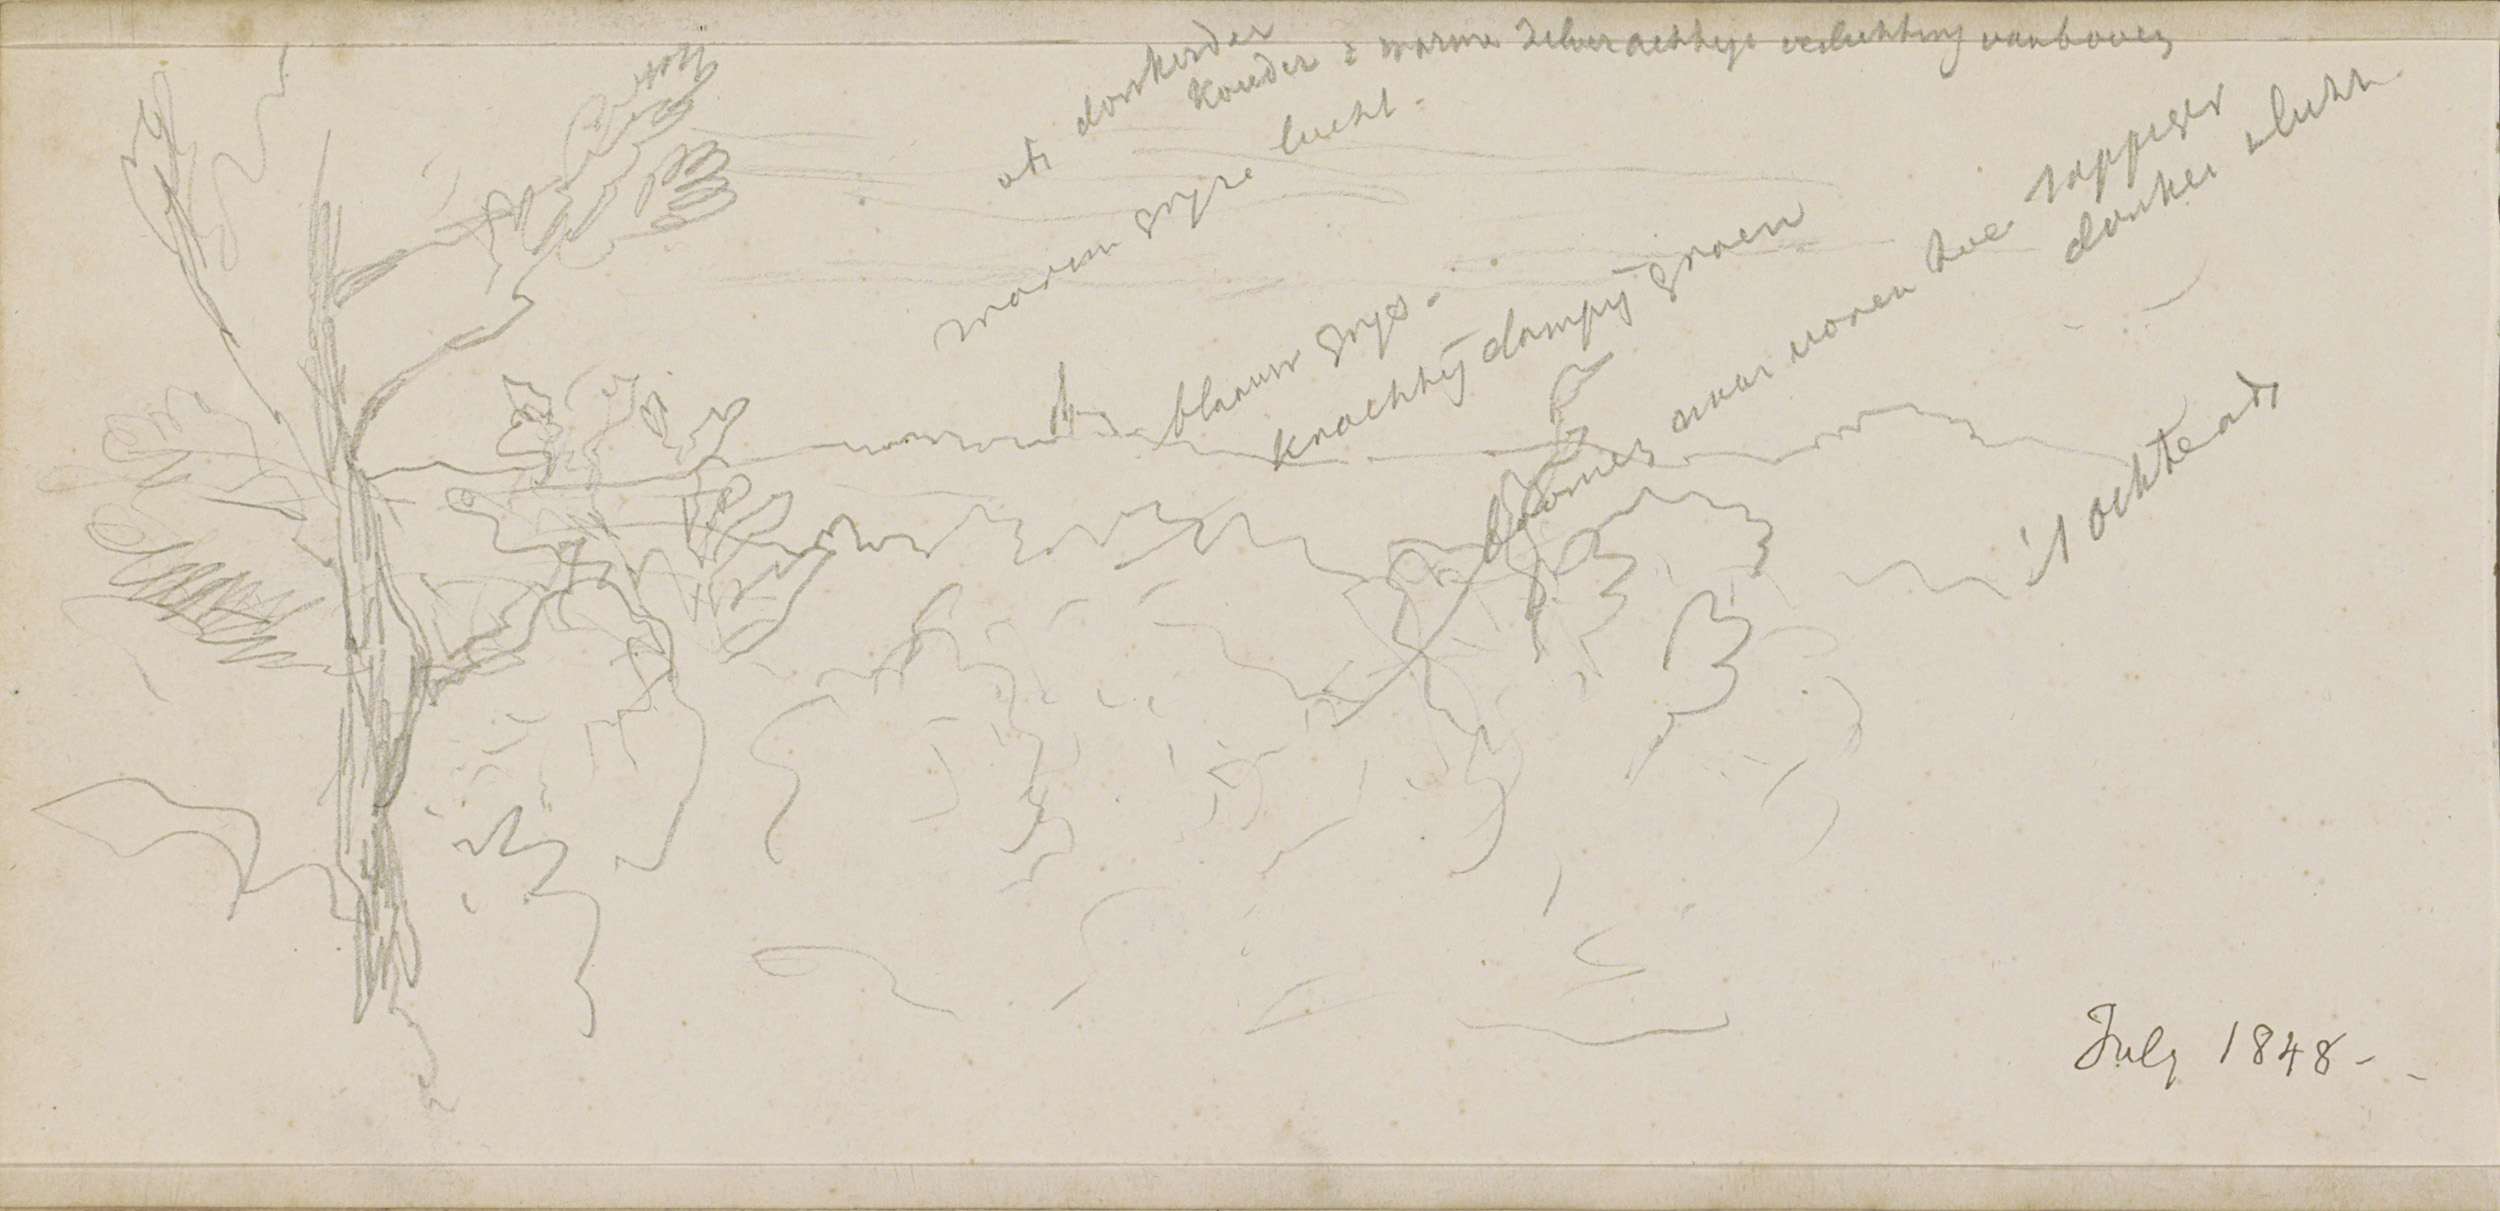 donkerder
kouder & warme zilverachtige verlichting van boven
warm gryze lucht.
blaauw grys.
krachtig dampig groen
boomen naar voren toe sappiger
donker
's ochtends
July 1848 -